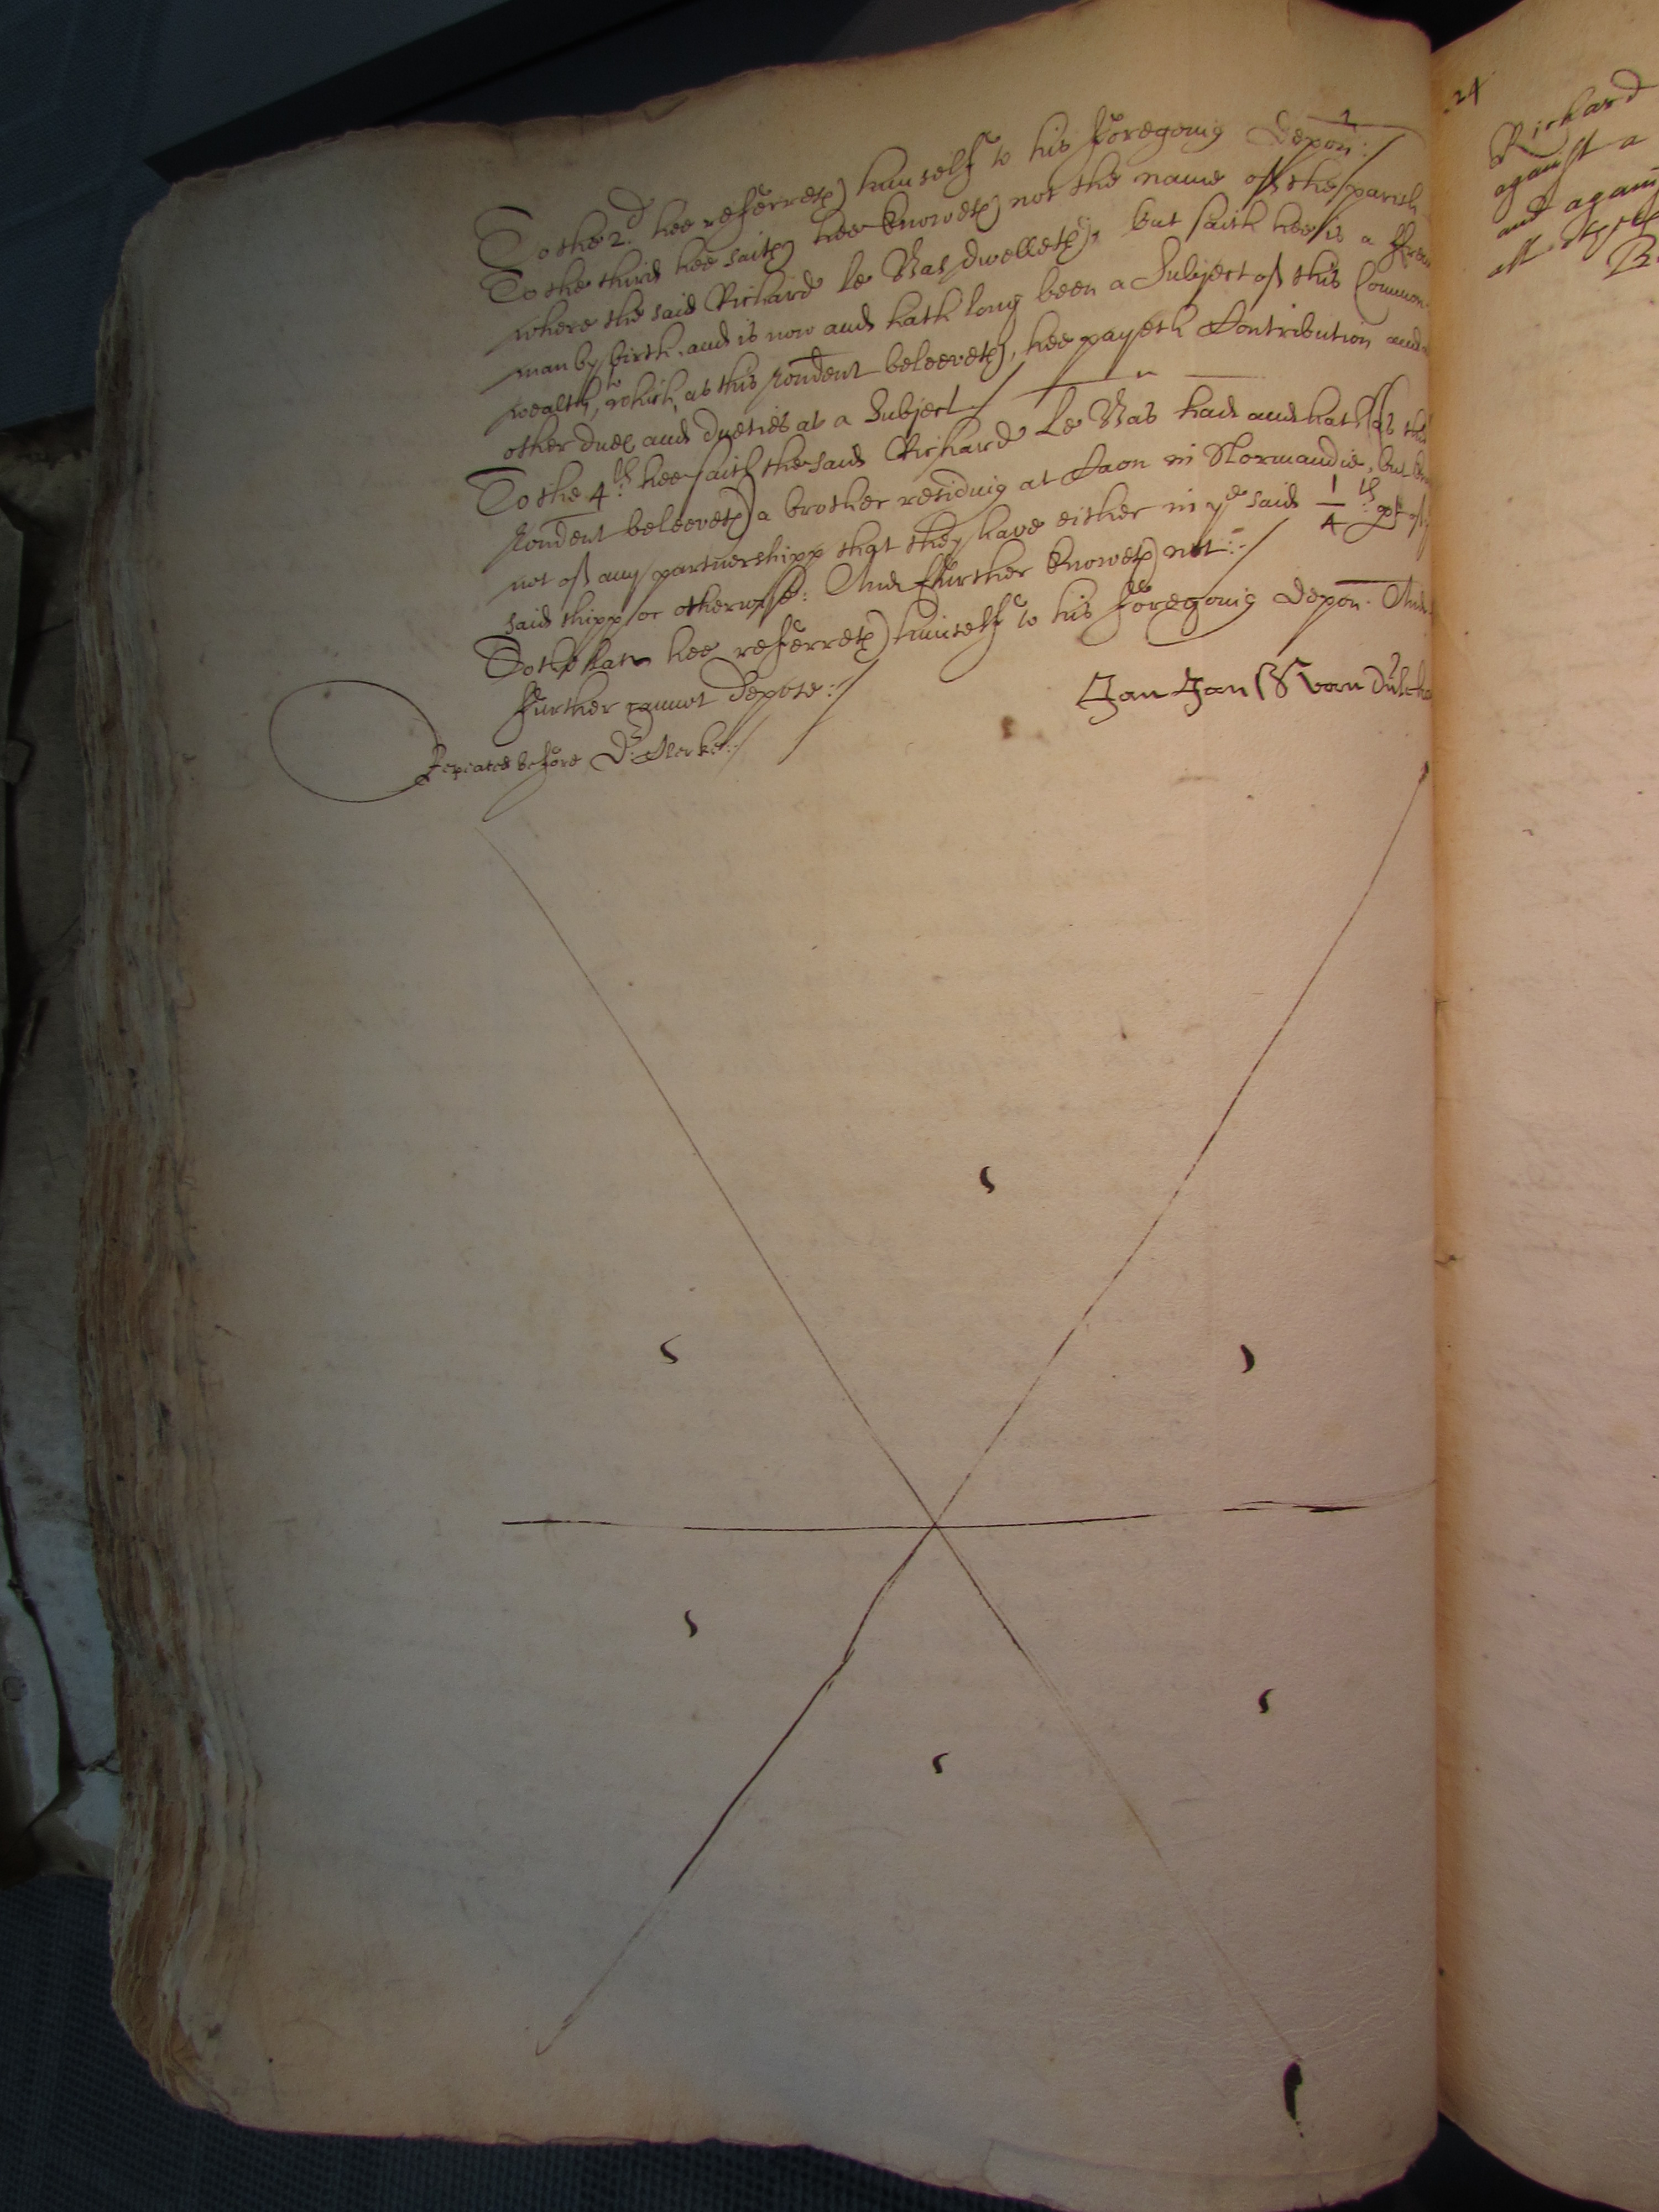 To the 2.d hee referreth himself to his foregoing depon:
To the third hee saith hee knoweth not the name of the parish
where the said Richard Le Bas dwelleth, but saith hee is a ffrench
man by birth, and is now and hath long been a Subject of this Common
wealth, to which, as this rondent beleeveth, hee payeth Contribution and
other dues and dueties as a Subject
To the 4.th hee saith the said Richard Le Bas had and hath (as this
rondent beleeveth) a brother residing at Caon in Normandie, but
not of any partnershipp that they have either in ye said 1/4 th pt of
said shipp or otherwise: And ffurther knoweth not:-
To the last hee referreth himself to his foregoing depon. And
further cannot depose:
Jan Jan van
Repeated before Dr. Clerke:-
24
Richard
against a
and again